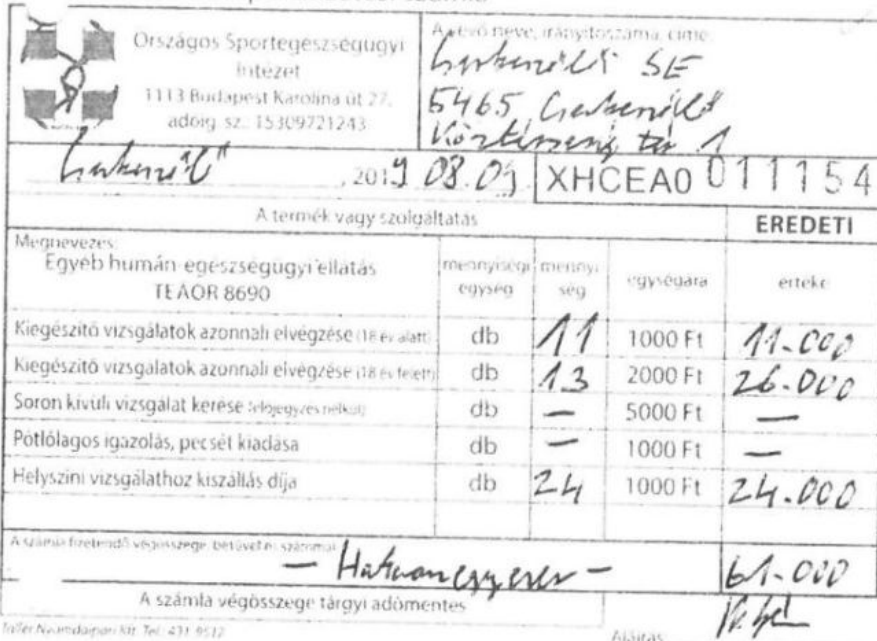 Országos Sportegészségügyi
Intézet
1113 Budapest Karolina út 27.
adóig. sz.: 15309721243
A vevő neve, irányítószáma, címe:
SE
5465
tér 1
, 2019 08.09 XHCEA0 011154
A termék vagy szolgáltatás EREDETI
Megnevezés:
Egyéb humán-egészségügyi ellátás
TEAOR 8690
mennyiségi egység
mennyiség
egységára
értéke
Kiegészítő vizsgálatok azonnali elvégzése (18 év alatt) db 11 1000 Ft 11.000
Kiegészítő vizsgálatok azonnali elvégzése (18 év felett) db 13 2000 Ft 26.000
Soron kívüli vizsgálat kérése (előjegyzés nélkül) db — 5000 Ft —
Pótlólagos igazolás, pecsét kiadása db — 1000 Ft —
Helyszíni vizsgálathoz kiszállás díja db 24 1000 Ft 24.000
A számla fizetendő végösszege, betűvel és számmal
— Hatvanegyezer — 61.000
A számla végösszege tárgyi adómentes
Aláírás